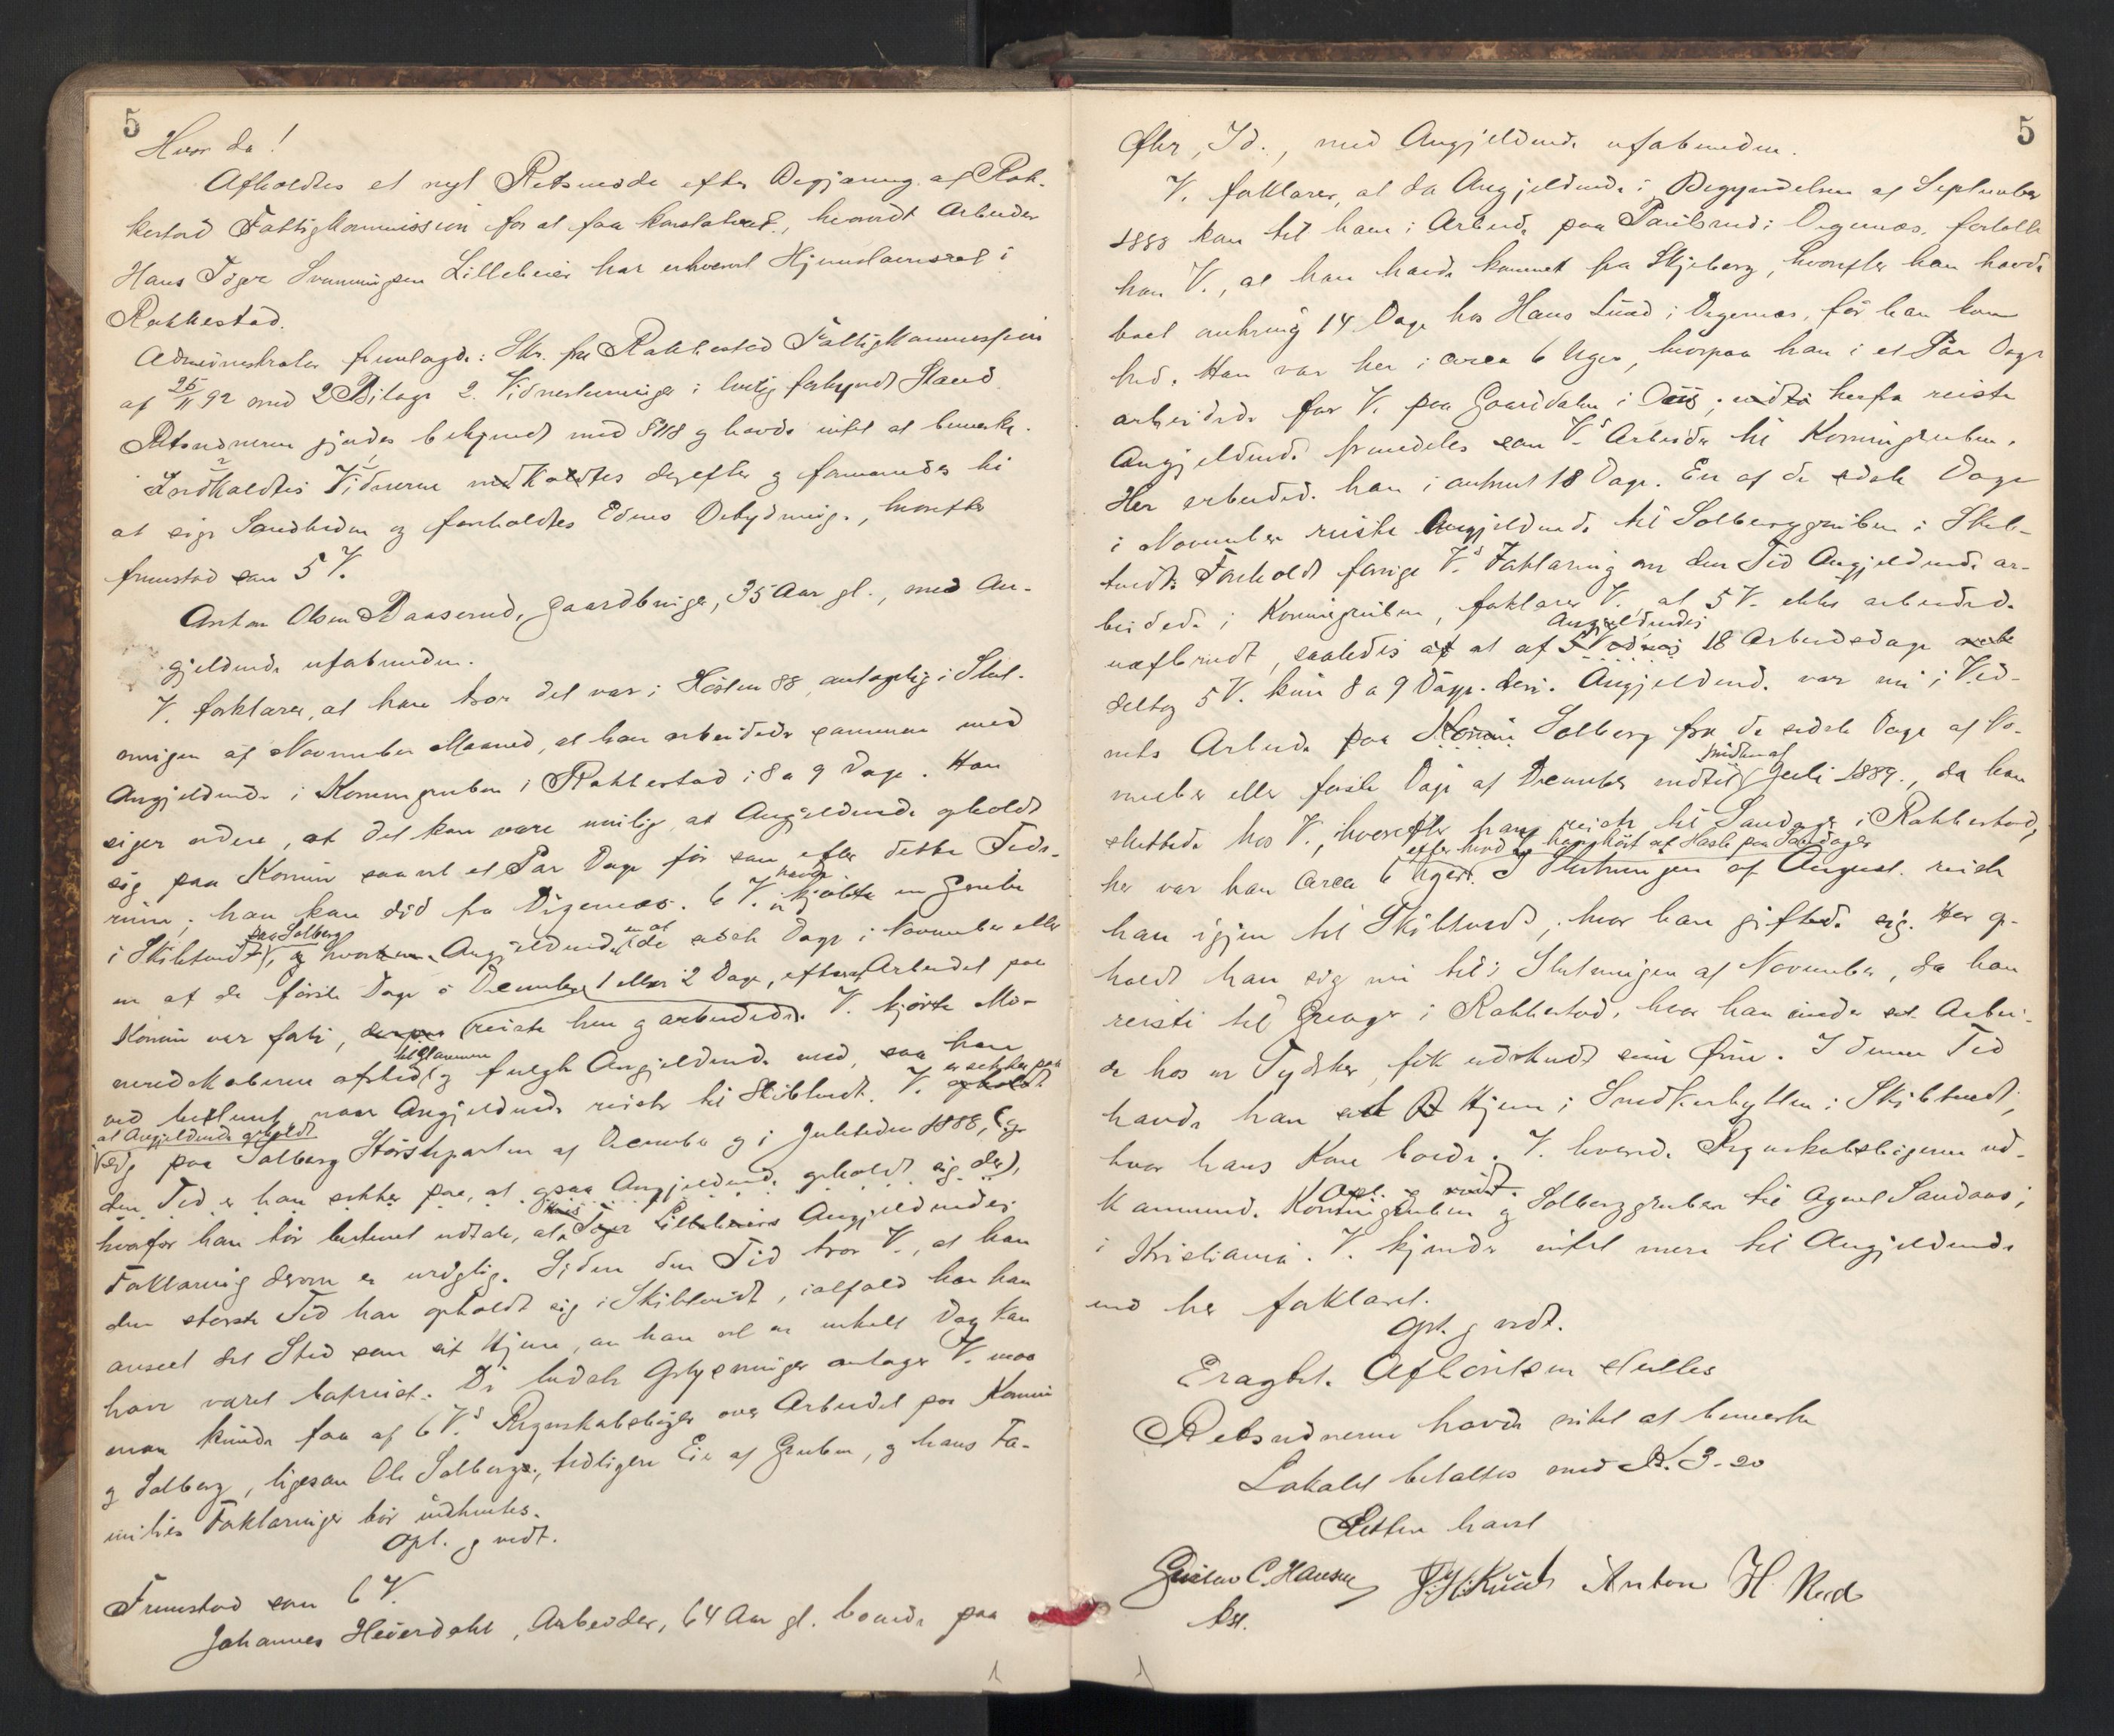 5
Hvor da!
Afholdtes et nyt Retsmøde efter Begjæring af Rak-
kestad Fattigkommission for at faa konstateret, hvorvidt Arbeider
Hans Tøger Svenningsen Lillebeier har erhvervet Hjemstavnsret i
Rakkestad.
Administrator fremlagde: Skr. fra Rakkestad Fattigkommission
af 25/11 92 med 2 Bilage 2. Vidnestevninger i lovlig forkyndt Stand.
Retsvidnerne gjordes bekjendt med og havde intet at bemærke.
Indkaldtes Vidnerne derefter og formanedes til
at sige Sandheden og foreholdtes Edens Betydning, hvorefter
fremstod som 5 V.
Anton Olsen Baaserud, Gaardbruger, 35 Aar gl., med An-
gjeldende ubeslægtet.
V. forklarer, at han tror det var i Høsten 88, antagelig i Slut-
ningen af November Maaned, at han arbeidede sammen med
Angjeldende i Komingruben i Rakkestad i 8 a 9 Dage. Han
siger videre, at det kan være mulig at Angjeldende opholdt
sig paa Komin saavel et Par Dage før som efter dette Tids-
rum; han kom did fra Degernæs. 6 V. havde kjøbte en Grube
i Skibtvedt, paa Solberg, og hvorhen Angjeldende en af de sidste Dage i November eller
en af de første Dage i December 1 eller 2 Dage, efterat Arbeidet paa
Komin var forbi, reiste hen og arbeidede. V. kjørte Mi-
neredskaberne afsted til Slammen og fulgte Angjeldende med, saa han
ved bestemt, naar Angjeldende reiste til Skibtvedt. V. er sikker paa
at Angjeldende opholdt
sig paa Solberg Størsteparten af December og i Juletiden 1888, og
den Tid er han sikker paa, at ogsaa Angjeldende opholdt sig der,
hvorfor han tør bestemt udtale, at Hans Tøger Lillebeiers Angjeldendes
Forklaring derom er urigtig. Siden den Tid tror V., at han
den største Tid har opholdt sig i Skibtvedt, ialfald har han
anseet det Sted som sit Hjem, om han vel en enkelt Dag kan
have været bortreist. De bedste Oplysninger antager V. maa
man kunde faa af 6 V.s Regnskabsbøger over Arbeidet paa Komin
og Solberg, ligesom Ole Solberg, tidligere Eier af Gruben, og hans Fa-
milies Forklaringer bør indhentes.
Opl. og vedt.
Fremstod som 6 V.
Johannes Heierdahl, Arbeider, 64 Aar gl. boende paa
5
Øhr, Id., med Angjeldende ubeslægtet.
V. forklarer, at da Angjeldende i Begyndelsen af September
1888 kom til ham i Arbeide paa Paulsrud i Degernæs, fortalte
han V., at han havde kommet fra Skjeberg, hvorefter han havde
boet omkring 14 Dage hos Hans Lund i Degernæs, før han kom
hid. Han var her i circa 6 Uger, hvorpaa han i et Par Dage
arbeidede for V. paa Gaarddalen i herfra reiste
Angjeldende fremdeles som V.s Arbeider til Komingruben.
Her arbeidede han i omtrent 18 Dage. En af de sidste Dage
i November reiste Angjeldende til Solberggruben i Skib-
tvedt. Foreholdt forrige V.s Forklaring om den Tid Angjeldende ar-
beidede i Komingruben, forklarer V. at 5 V. ikke arbeidede
uafbrudt, saaledes at af Angjeldendes 18 Arbeidsdage
deltog 5 V. kun 8 a 9 Dage deri. Angjeldende var nu i Vid-
nets Arbeide paa Solberg fra de sidste Dage af No-
vember eller første Dage af December indtil midten af Juli 1889, da han
sluttede hos V., hvorefter han reiste til Sandager i Rakkestad,
efter hvad han hørt af Hasle paa Sandager
her var han circa 6 Uger. I Slutningen af August reiste
han igjen til Skibtvedt, hvor han giftede sig. Her op-
holdt han sig nu til i Slutningen af November, da han
reiste til Grenge i Rakkestad, hvor han under et Arbei-
de hos en Tydsker, fik udskudt sine Øine. I denne Tid
havde han sit Hjem i Snedkerhytten i Skibtvedt,
hvor hans Kone boede. V. havde Regnskabsbøgerne ved-
kommende Komingruben og Solberggruben til Agent Sandaas
i Kristiania. V. kjender intet mere til Angjeldende
end her forklaret.
Opl. og vedt.
Eragtet. Afhørelsen sluttes
Retsvidnerne havde intet at bemærke
Lokalet betaltes med Kr. 3-20
Retten hævet
Gustav C. Hansen Anton H. Rud
bst.